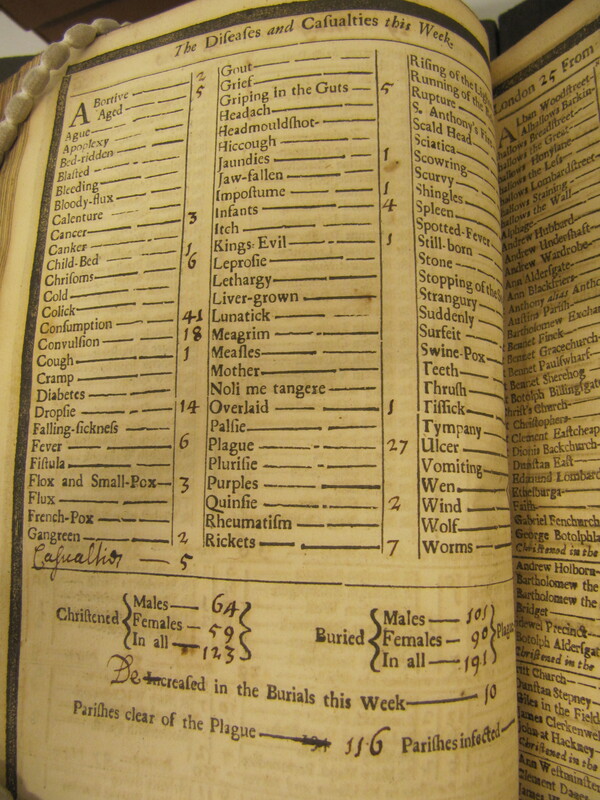 The Diſeaſes and Caſualties this Week.
Abortive 2
Aged 5
Ague
Apoplexy
Bed-ridden
Blaſted
Bleeding
Bloody-flux
Calenture
Cancer 3
Canker 1
Child-Bed 6
Chriſoms
Cold
Colick
Conſumption 41
Convulſion 18
Cough 1
Cramp
Diabetes
Dropſie 14
Falling-ſickneſs
Fever 6
Fiſtula
Flox and Small-Pox 3
Flux
French-Pox
Gangreen 2
Caſualties 5
Gout
Grief
Griping in the Guts 5
Headach
Headmouldſhot
Hiccough
Jaundies 1
Jaw-fallen
Impoſtume 1
Infants 4
Itch
Kings-Evil 1
Leproſie
Lethargy
Liver-grown
Lunatick
Meagrim
Meaſles
Mother
Noli me tangere
Overlaid 1
Palſie
Plague 27
Pluriſie
Purples
Quinſie 2
Rheumatiſm
Rickets 7
Riſing of the
Running of the
Rupture
S. Anthony's
Scald Head
Sciatica
Scowring
Scurvy
Shingles
Spleen
Spotted-Fever
Still-born
Stone
Stopping of the
Strangury
Suddenly
Surfeit
Swine-Pox
Teeth
Thruſh
Tiſſick
Tympany
Ulcer
Vomiting
Wen
Wind
Wolf
Worms
Chriſtened Males 64
Females 59
In all 123
Buried Males 101
Females 90
In all 191
Plague
Decreaſed in the Burials this Week 10
Pariſhes clear of the Plague 116 Pariſhes infected
London 25 From
Alban Woodſtreet
Alhallows Barkin
Andrew Hubbard
Andrew Underſhaft
Andrew Wardrobe
Ann Alderſgate
Ann Blackfriers
Anthony alias
Auſtins Pariſh
Bartholomew
Bennet Finck
Bennet Gracechurch
Bennet Paulſwharf
Bennet Sherehog
Botolph Billingſgate
Chriſt's Church
Chriſtophers
Clement Eaſtcheap
Dionis Backchurch
Dunſtan Eaſt
Edmund Lombard
Ethelburga
Faith
Gabriel Fenchurch
George Botolphla
Chriſtened in the
Andrew Holborn
Bartholomew the
Bartholomew the
Bridget
Bridewel Precinct
Botolph Alderſgat
Chriſtened in the
Chriſt Church
Dunſtan Stepney
Giles in the Field
James Clerkenwel
John at Hackney
Chriſtened in the
Ann Weſtminſter
Clement Danes